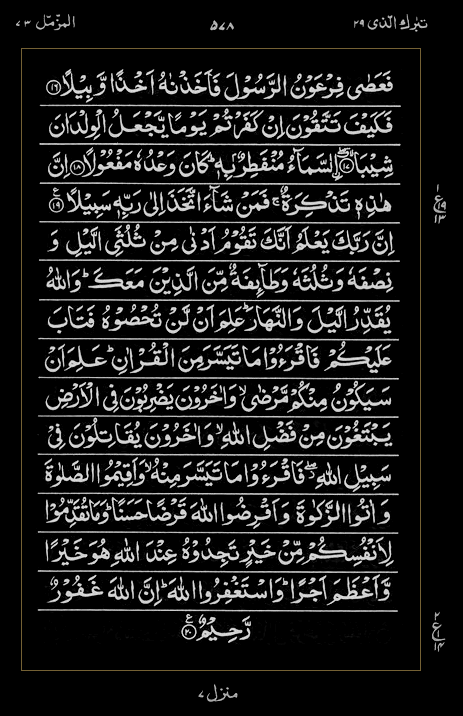 تبٰرك الّذی ٢٩
۵۷۸
المزّمّل ٧٣
فَعَصٰى فِرْعَوْنُ الرَّسُوْلَ فَاَخَذْنٰهُ اَخْذًا وَّبِيْلًا ﴿١٦﴾
فَكَيْفَ تَتَّقُوْنَ اِنْ كَفَرْتُمْ يَوْمًا يَّجْعَلُ الْوِلْدَانَ
شِيْبَا ﴿١٧﴾ ۨالسَّمَآءُ مُنْفَطِرٌۢ بِهٖ ؕ كَانَ وَعْدُهٗ مَفْعُوْلًا ﴿١٨﴾ اِنَّ
هٰذِهٖ تَذْكِرَةٌ ۚ فَمَنْ شَآءَ اتَّخَذَ اِلٰى رَبِّهٖ سَبِيْلًا ﴿١٩﴾ ع
اِنَّ رَبَّكَ يَعْلَمُ اَنَّكَ تَقُوْمُ اَدْنٰى مِنْ ثُلُثَيِ الَّيْلِ وَ
نِصْفَهٗ وَثُلُثَهٗ وَطَآئِفَةٌ مِّنَ الَّذِيْنَ مَعَكَ ؕ وَاللّٰهُ
يُقَدِّرُ الَّيْلَ وَالنَّهَارَ ؕ عَلِمَ اَنْ لَّنْ تُحْصُوْهُ فَتَابَ
عَلَيْكُمْ فَاقْرَءُوْا مَا تَيَسَّرَ مِنَ الْقُرْاٰنِ ؕ عَلِمَ اَنْ
سَيَكُوْنُ مِنْكُمْ مَّرْضٰى ۙ وَاٰخَرُوْنَ يَضْرِبُوْنَ فِى الْاَرْضِ
يَبْتَغُوْنَ مِنْ فَضْلِ اللّٰهِ ۙ وَاٰخَرُوْنَ يُقَاتِلُوْنَ فِيْ
سَبِيْلِ اللّٰهِ ۖ فَاقْرَءُوْا مَا تَيَسَّرَ مِنْهُ ۙ وَاَقِيْمُوا الصَّلٰوةَ
وَاٰتُوا الزَّكٰوةَ وَاَقْرِضُوا اللّٰهَ قَرْضًا حَسَنًا ؕ وَمَا تُقَدِّمُوْا
لِاَنْفُسِكُمْ مِّنْ خَيْرٍ تَجِدُوْهُ عِنْدَ اللّٰهِ هُوَ خَيْرًا
وَّاَعْظَمَ اَجْرًا ؕ وَاسْتَغْفِرُوا اللّٰهَ ؕ اِنَّ اللّٰهَ غَفُوْرٌ
رَّحِيْمٌ ﴿٢٠﴾ ع
١
ع ١٩
١٣
٢
ع ١
١٤
منزل ۷